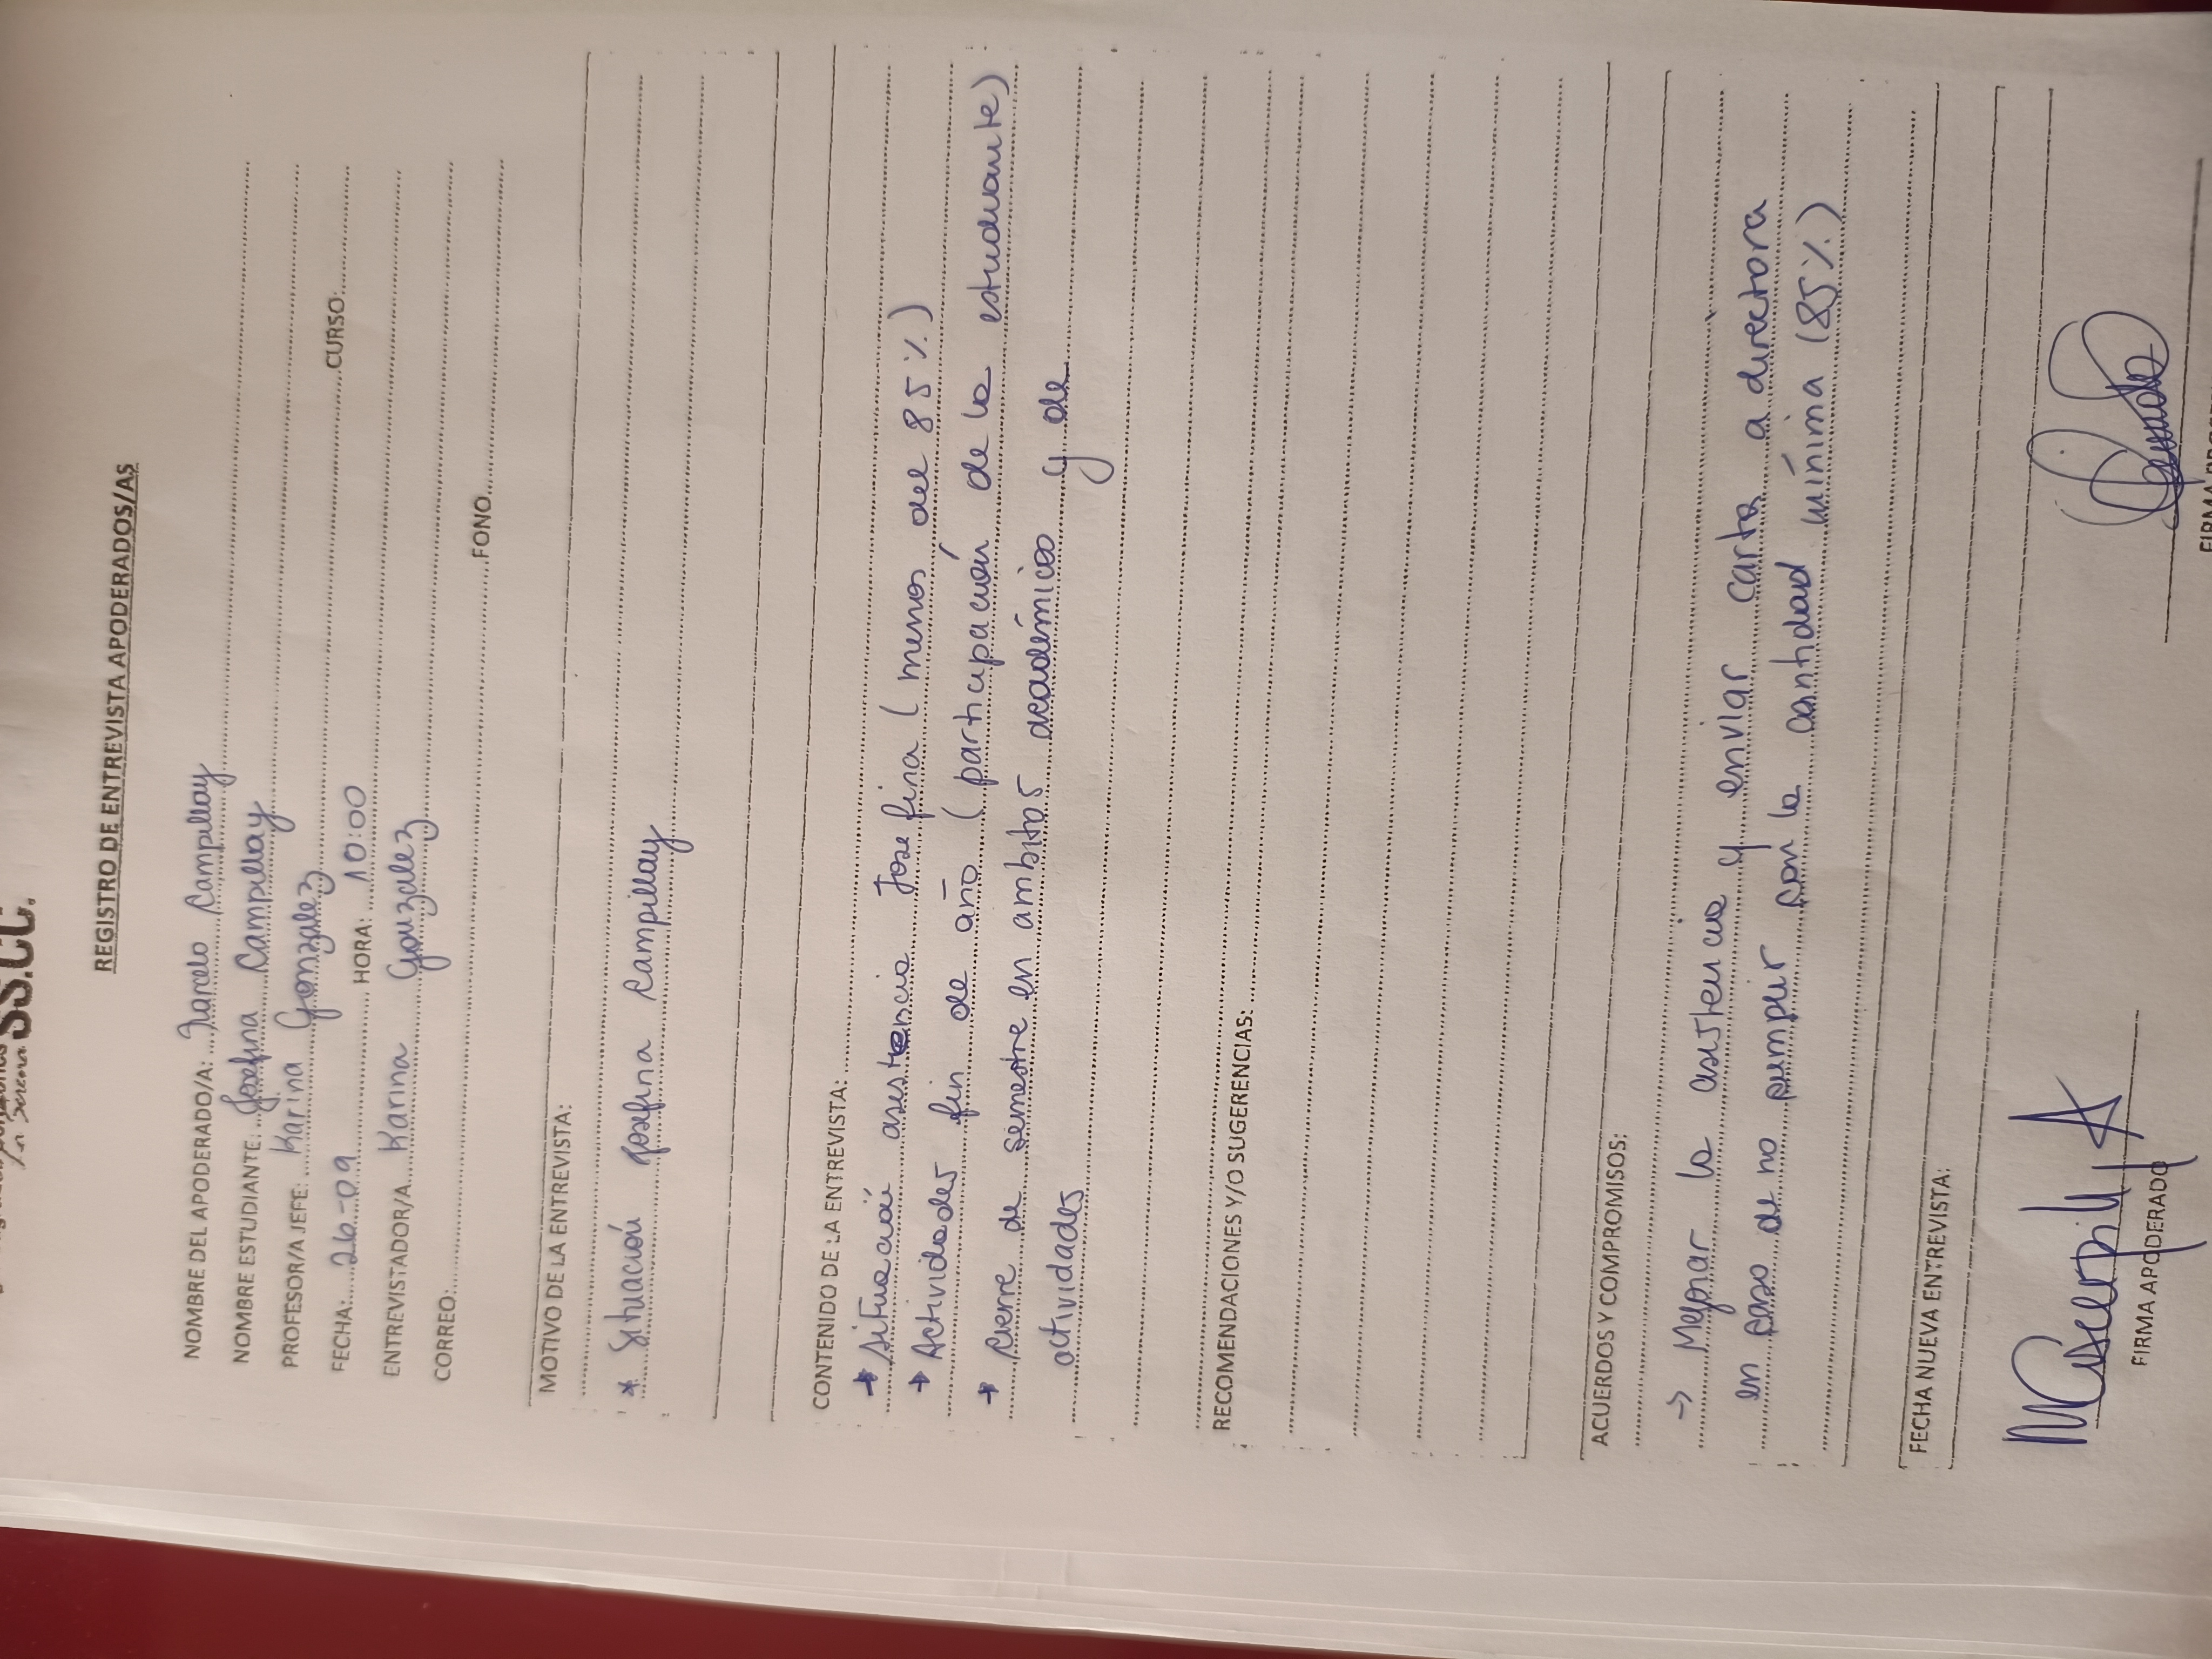 SS.CC.
La Serena
REGISTRO DE ENTREVISTA APODERADOS/AS
NOMBRE DEL APODERADO/A: Marcelo Campillay
NOMBRE ESTUDIANTE: Josefina Campillay
PROFESOR/A JEFE: Karina Gonzalez CURSO:
FECHA: 26-09 HORA: 10:00
ENTREVISTADOR/A Karina Gonzalez
CORREO: FONO
MOTIVO DE LA ENTREVISTA:
* Situación Josefina Campillay
CONTENIDO DE LA ENTREVISTA:
→ Situación asistencia Josefina (menos del 85%)
→ Actividades fin de año (participación de la estudiante)
→ cierre de semestre en ambitos académico y de
actividades
RECOMENDACIONES Y/O SUGERENCIAS:
ACUERDOS Y COMPROMISOS:
-> Mejorar la asistencia y enviar carta a directora
en caso de no cumplir con la cantidad mínima (85%)
FECHA NUEVA ENTREVISTA:
FIRMA APODERADO